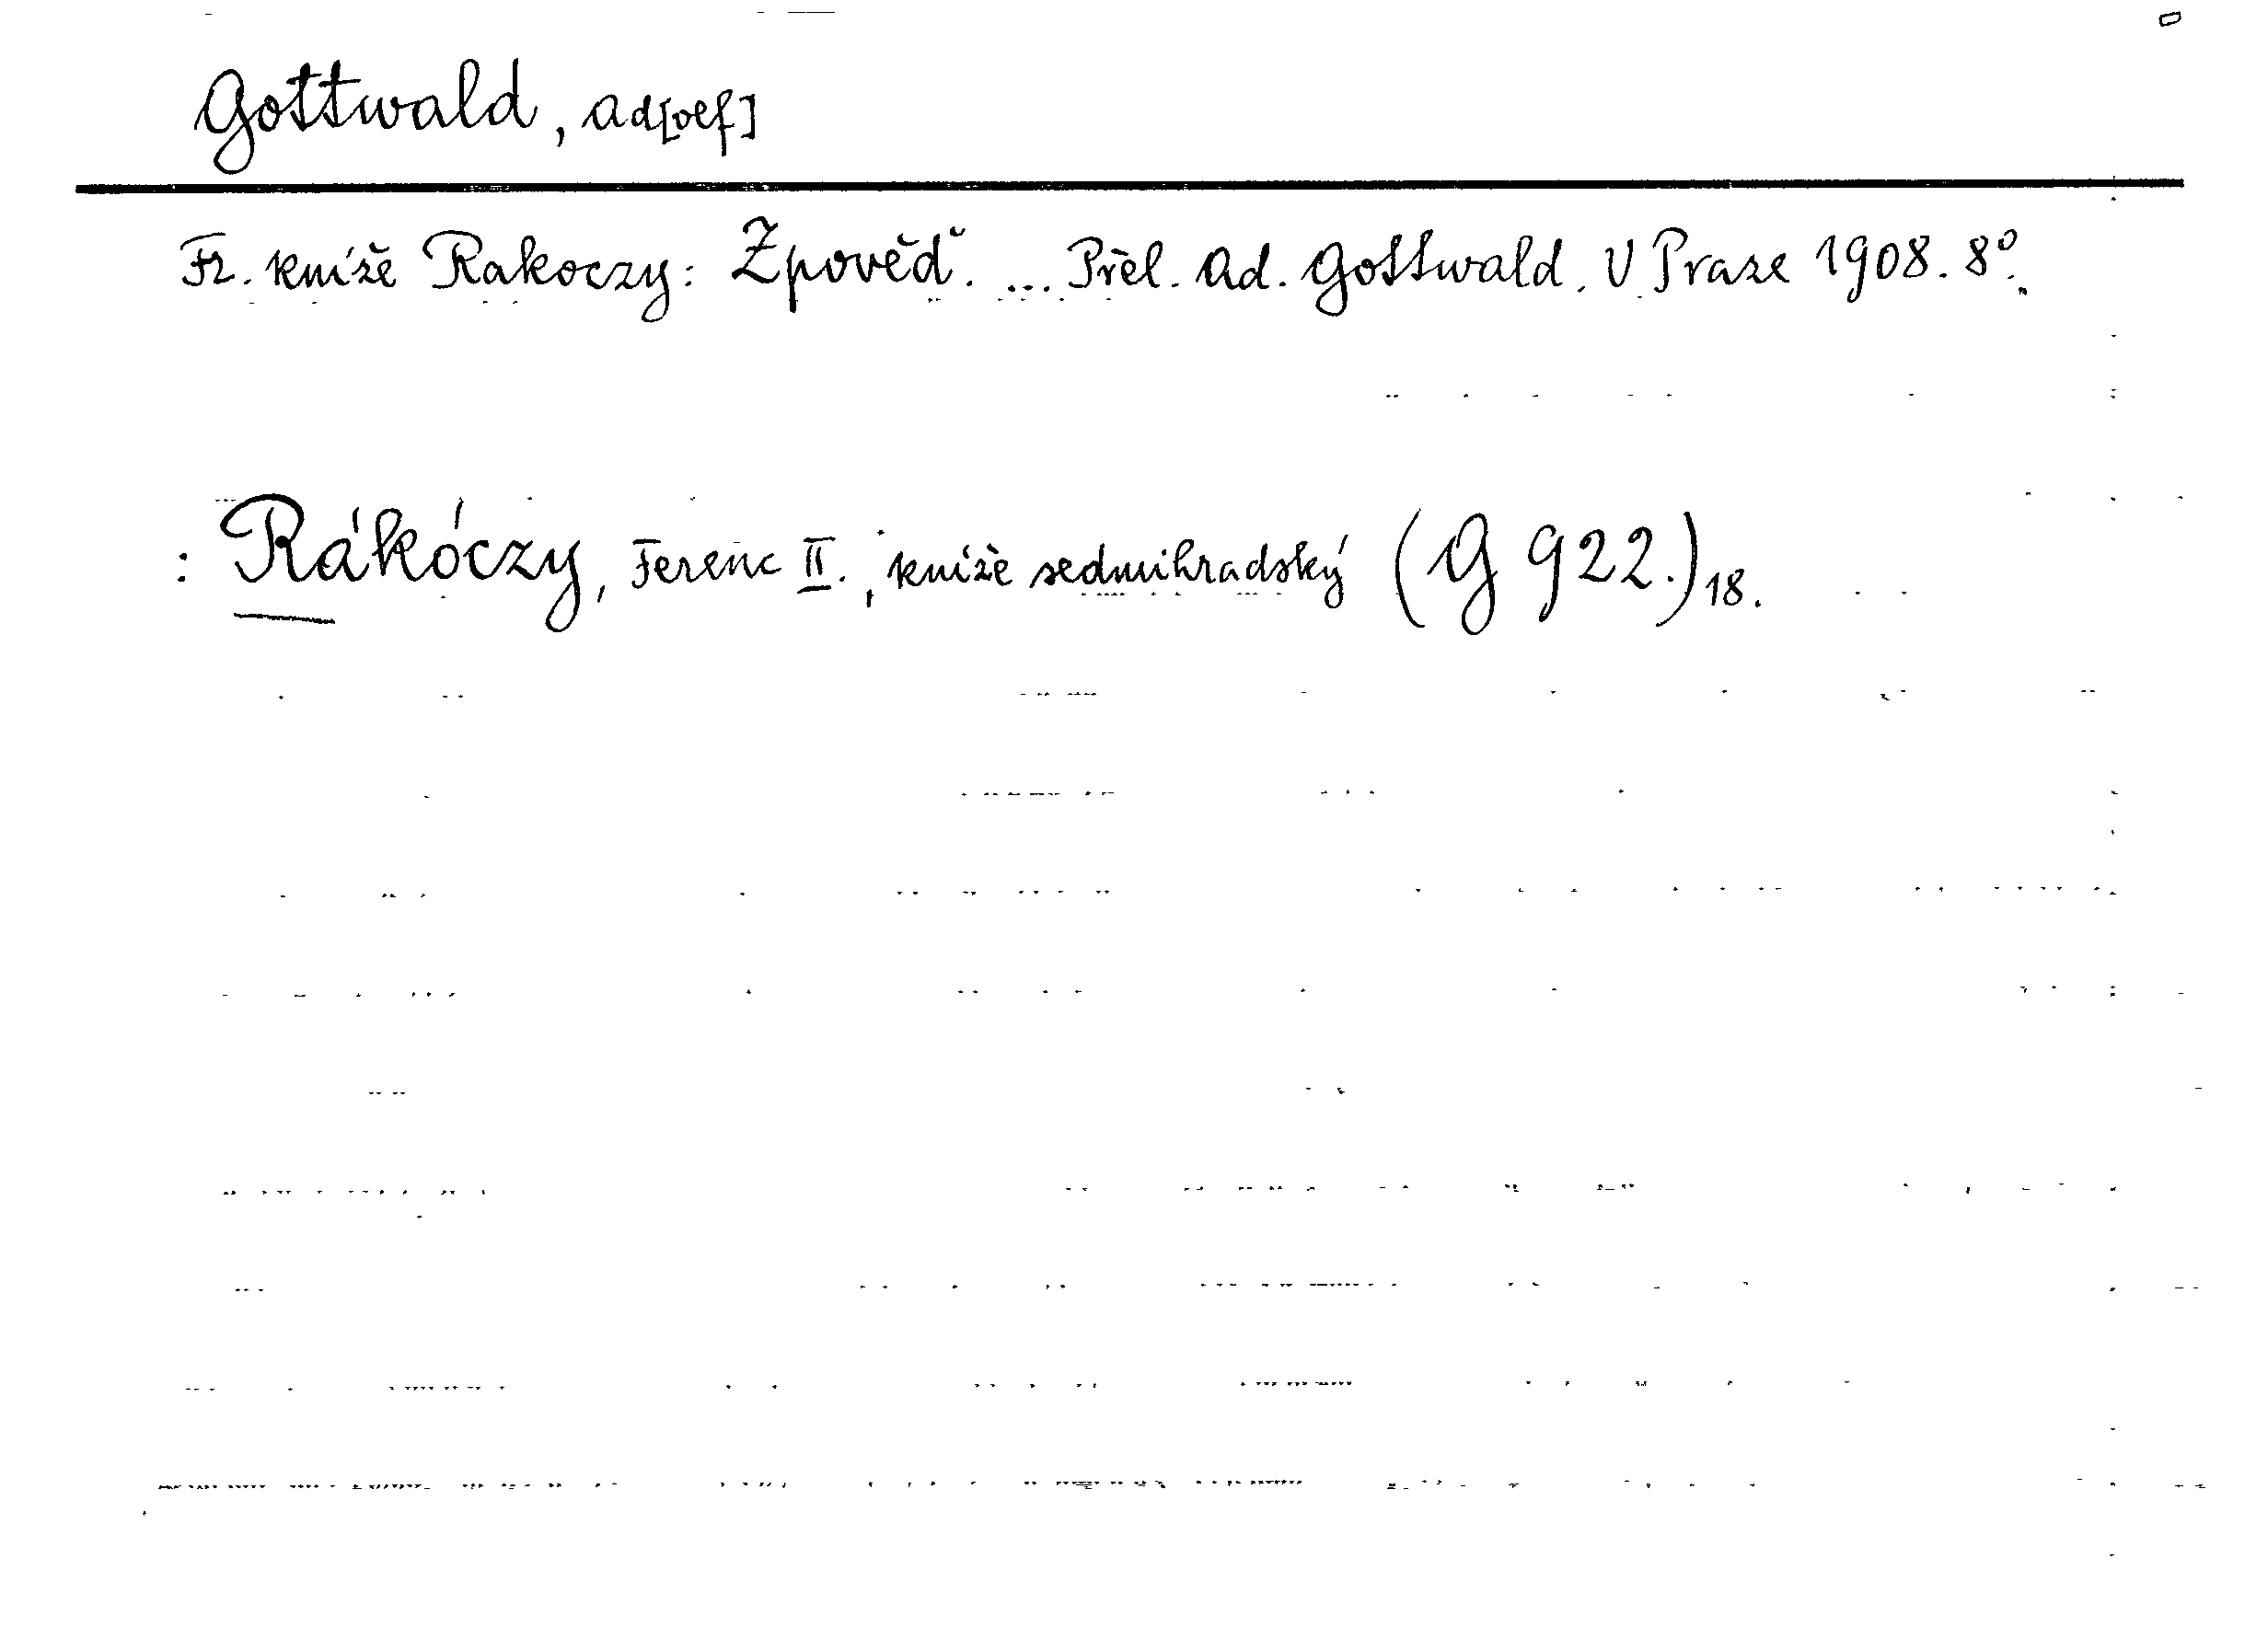 Gottwald, Ad[olf]
Fr. kníže Rakoczy: Zpověď. ... Přel. Ad. Gottwald. V Praze 1908. 8°.
: Rákóczy, Ferenc II., kníže sedmihradský (G 922.)18.